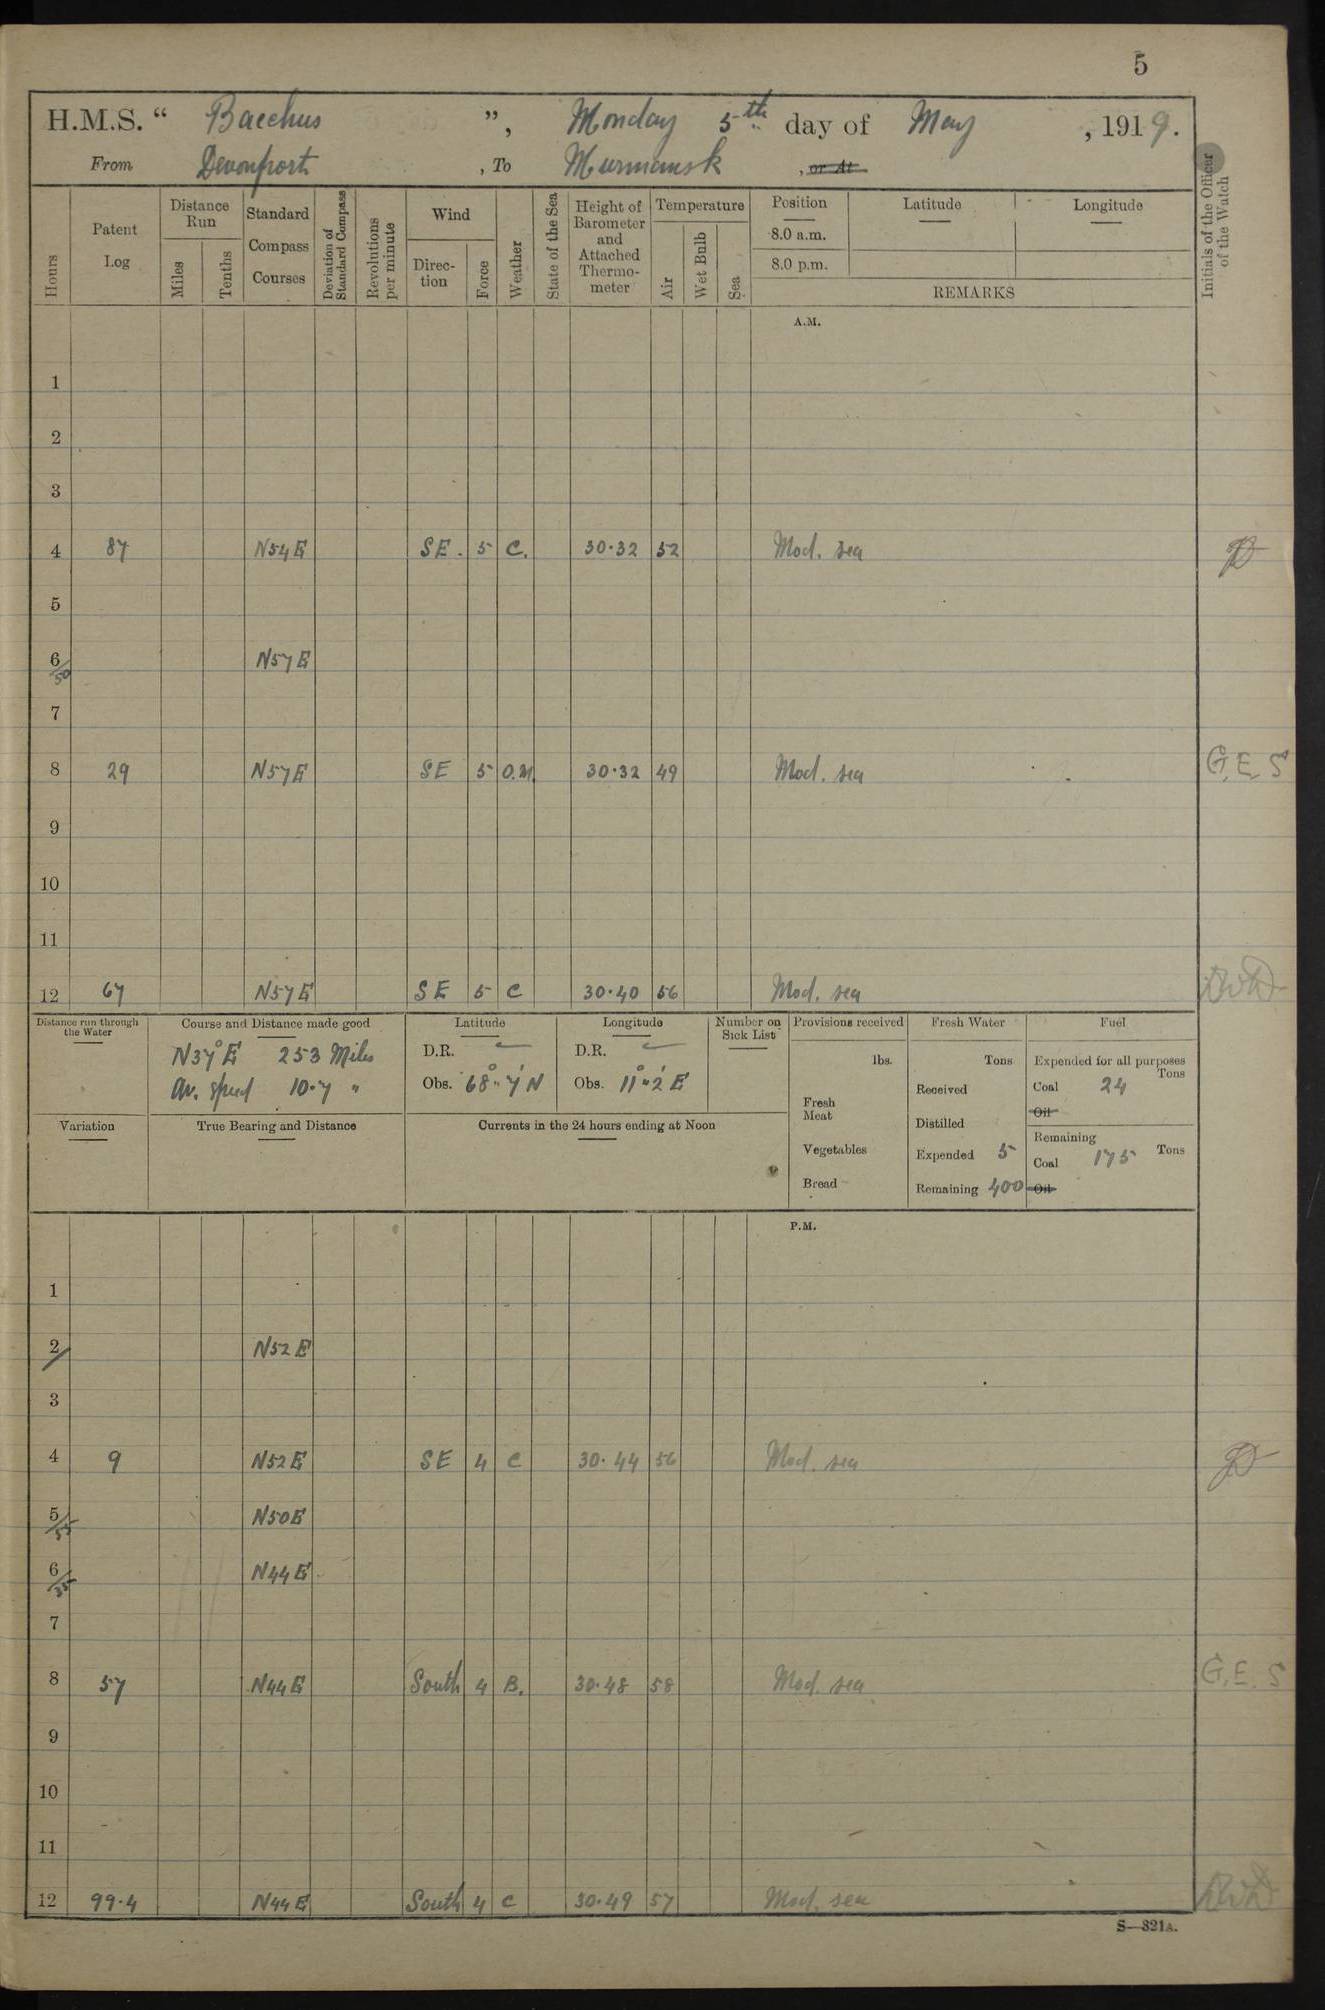 5
H.M.S. “ Bacchus ”, Monday 5th day of May, 1919.
From Devonport, To Murmansk, or At
Hours
Patent Log
Distance Run
Miles
Tenths
Standard Compass Courses
Deviation of Standard Compass
Revolutions per minute
Wind
Direction
Force
Weather
State of the Sea
Height of Barometer and Attached Thermometer
Temperature
Air
Wet Bulb
Sea
Position
8.0 a.m.
8.0 p.m.
Latitude
Longitude
REMARKS
Initials of the Officer of the Watch
A.M.
1
2
3
4 87 N54E SE. 5 C. 30·32 52 Mod. sea
5
6/50 N57E
7
8 29 N57E SE 5 O.M. 30·32 49 Mod. sea G.E.S
9
10
11
12 67 N57E SE 5 C 30·40 56 Mod. sea
Distance run through the Water
Course and Distance made good
N37°E 253 Miles
Av. speed 10·7 "
Latitude
D.R.
Obs. 68°·7' N
Longitude
D.R.
Obs. 11°·2' E
Number on Sick List
Provisions received
lbs.
Fresh Meat
Vegetables
Bread
Fresh Water
Tons
Received
Distilled
Expended 5
Remaining 400
Fuel
Expended for all purposes
Tons
Coal 24
Oil
Remaining
Coal 175 Tons
Oil
Variation
True Bearing and Distance
Currents in the 24 hours ending at Noon
P.M.
1
2/ N52E
3
4 9 N52E SE 4 C 30·44 56 Mod. sea
5/55 N50E
6/35 N44E
7
8 57 N44E South 4 B. 30·48 58 Mod. sea G.E.S
9
10
11
12 99·4 N44E South 4 C 30·49 57 Mod. sea
S—321A.